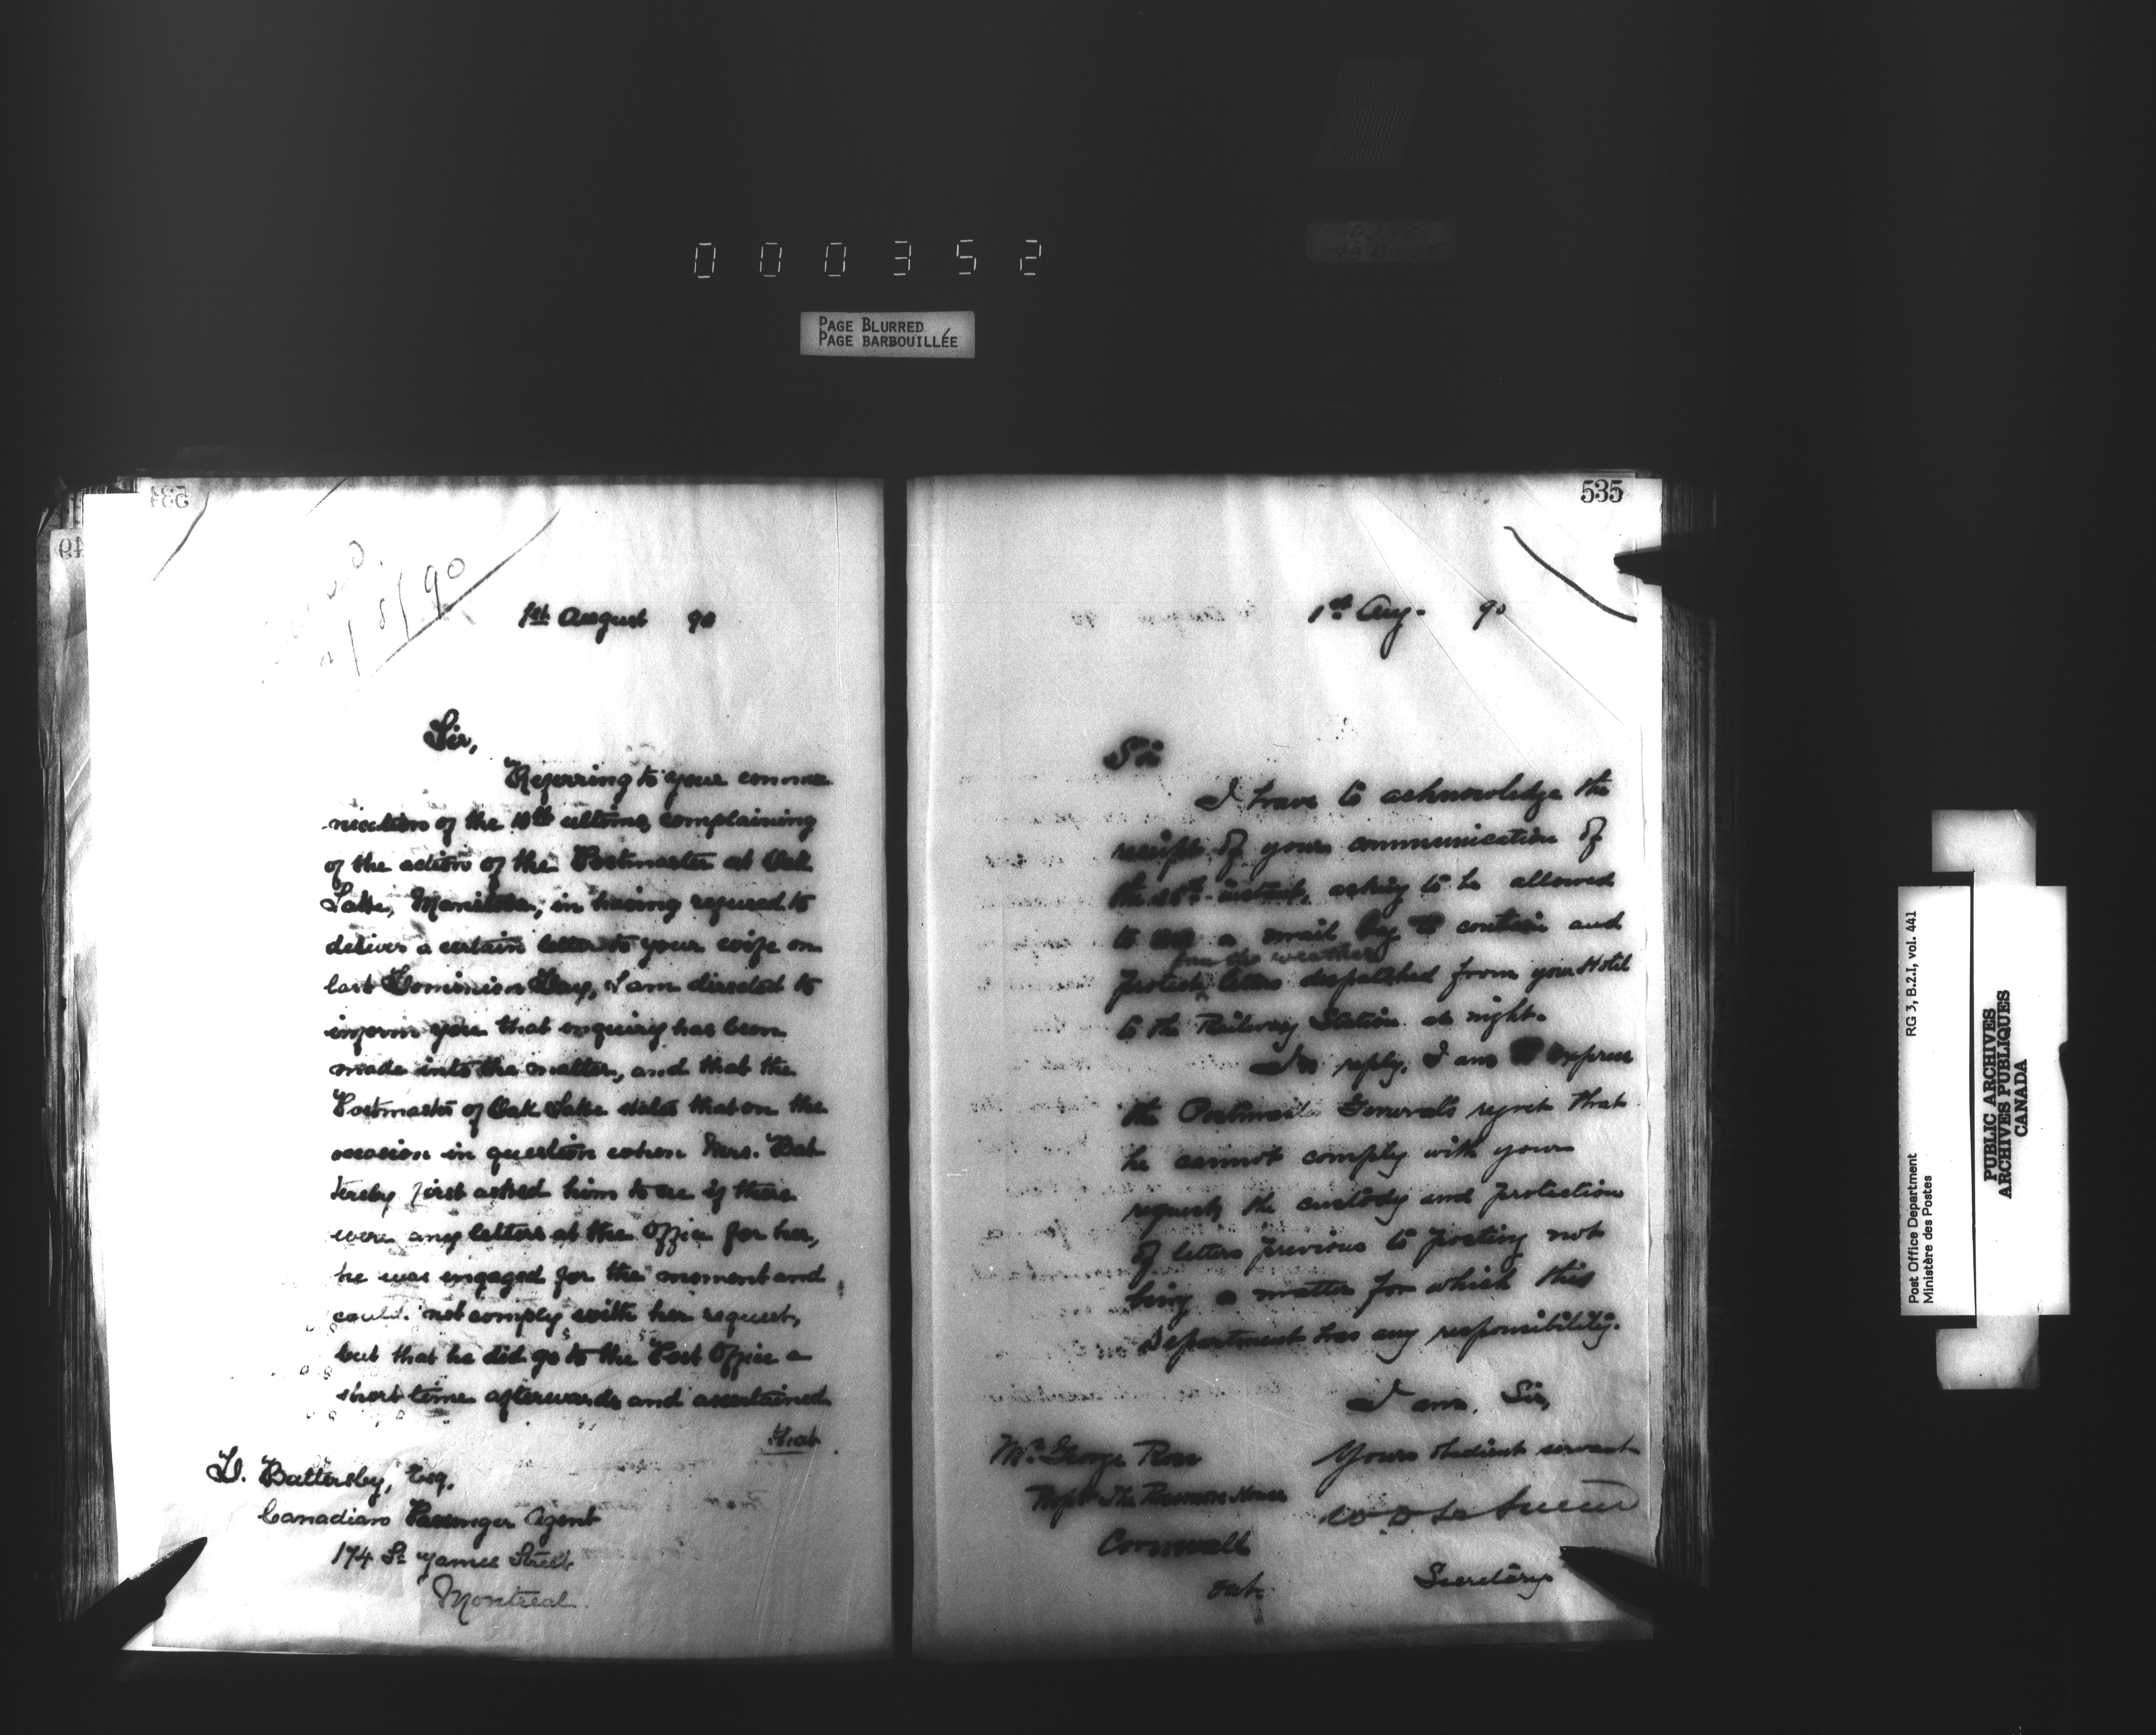 000352
PAGE BLURRED
PAGE BARBOUILLÉE
534
49
1/8/90
1st August 90
Sir,
Referring to your commu
nication of the 10th ultimo, complaining
of the action of the Postmaster at Oak
Lake, Manitoba, in having refused to
deliver a certain letter to your wife on
last Dominion Day, I am directed to
inform you that enquiry has been
made into the matter, and that the
Postmaster of Oak Lake states that on the
occasion in question when Mrs. Bat
tersby first asked him to see if there
were any letters at the Office for her,
he was engaged for the moment and
could not comply with her request,
but that he did go to the Post Office a
short time afterwards and ascertained
that
D. Battersby, Esq.
Canadian Passenger Agent
174 St James Street
Montreal.
535
1st Aug. 90
Sir
I have to acknowledge the
receipt of your communication of
the 28th instant, asking to be allowed
to use a mail bag to contain and
from the weather
protect letters despatched from your Hotel
to the Railway Station at night.
In reply, I am to express
the Postmaster General's regret that
he cannot comply with your
request, the custody and protection
of letters previous to posting not
being a matter for which this
Department has any responsibility.
I am, Sir,
Your obedient servant
W D LeSueur
Secretary
Mr. George Ross
Propr The Rossmore House
Cornwall
Ont.
Post Office Department RG 3, B.2.I, vol. 441
Ministère des Postes
PUBLIC ARCHIVES
ARCHIVES PUBLIQUES
CANADA